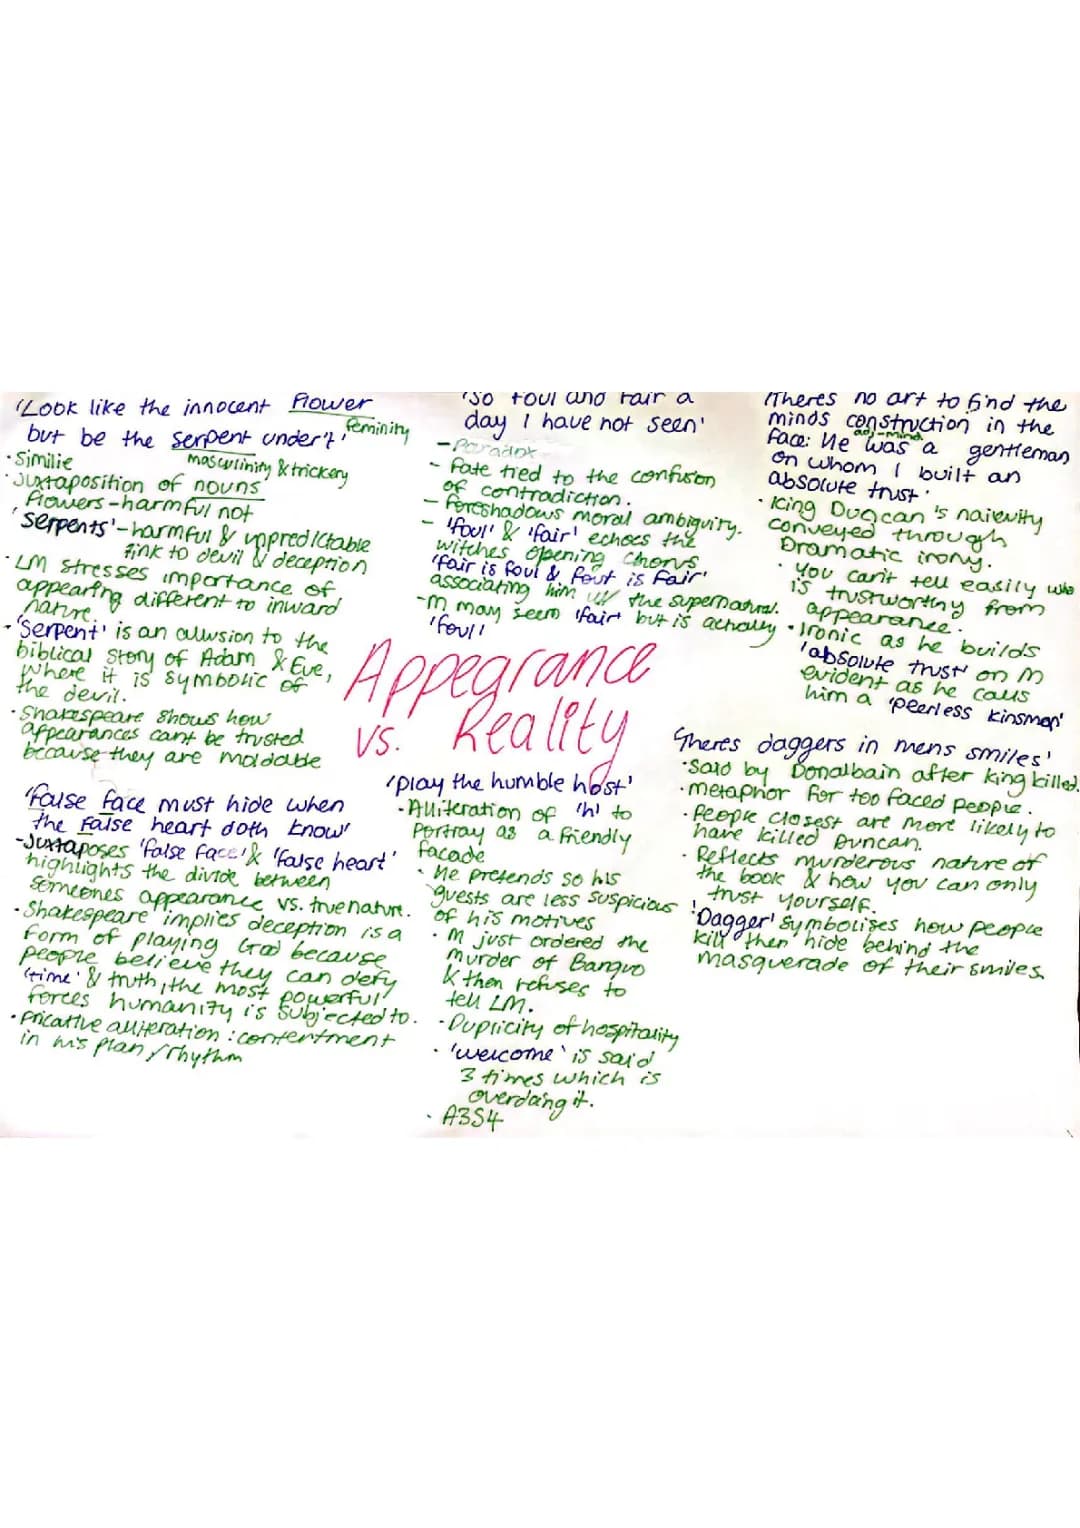 'Look like the innocent Flower
feminity
but be the serpent under't'
masculinity & trickery
·Similie
·Juxtaposition of nouns
Flowers - harmful not
'serpents' - harmful & unpredictable
link to devil & deception
·LM stresses importance of
appearing different to inward
nature.
·'Serpent' is an allusion to the
biblical story of Adam & Eve,
where it is symbolic of
the devil.
·Shakespeare shows how
appearances cant be trusted
because they are moldable
'False face must hide when
the False heart doth know'
-Juxtaposes 'false face' & 'false heart'
highlights the divide between
someones appearance vs. true nature.
·Shakespeare implies deception is a
form of playing God because
people believe they can defy
'time' & truth, the most powerful
forces humanity is subjected to.
·fricative alliteration: contentment
in his plan / rhythm
'So foul and fair a
day I have not seen'
- Paradox
- Fate tied to the confusion
of contradiction.
- foreshadows moral ambiguity.
- 'foul' & 'fair' echoes the
witches opening chorus
'fair is foul & foul is fair'
associating him w/ the supernatural.
-M may seem 'fair' but is actually
'foul'
Appearance
vs. Reality
'play the humble host'
·Alliteration of 'h' to
portray as a friendly
facade
·He pretends so his
guests are less suspicious
of his motives
·M just ordered the
murder of Banquo
& then refuses to
tell LM.
·Duplicity of hospitality
·'welcome' is said
3 times which is
overdoing it.
·A3S4
'Theres no art to find the
minds construction in the
adj-mind
face: He was a gentleman
on whom I built an
absolute trust'
·King Duncan's naievity
conveyed through
Dramatic irony.
·You can't tell easily who
is trustworthy from
appearance.
·Ironic as he builds
'absolute trust' on M
evident as he calls
him a 'peerless kinsman'
'Theres daggers in mens smiles'
·Said by Donalbain after king killed.
·metaphor for too faced people.
·People closest are more likely to
have killed Duncan.
·Reflects murderous nature of
the book & how you can only
trust yourself.
·'Dagger' symbolises how people
kill then hide behind the
masquerade of their smiles